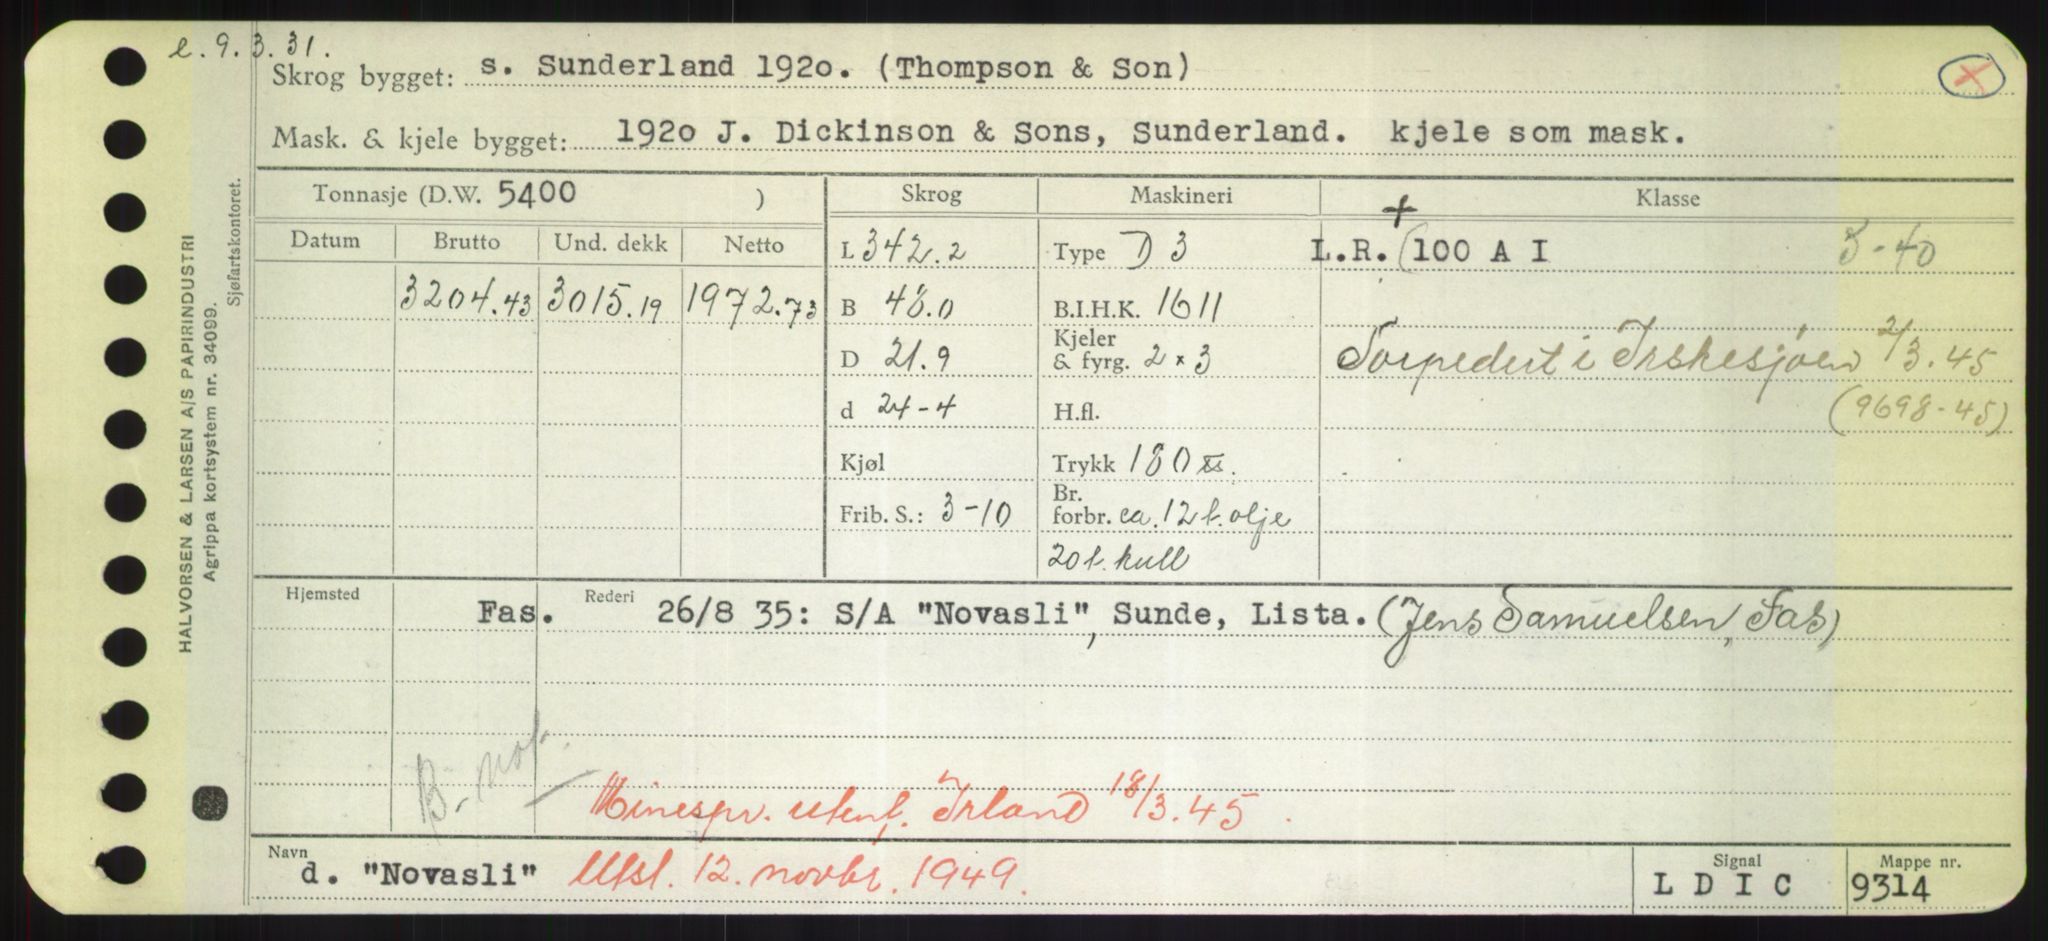 e. 9. 3. 31.
Skrog bygget: s. Sunderland 1920. (Thompson & Son)
Mask. & kjele bygget: 1920 J. Dickinson & Sons, Sunderland. kjele som mask.
Tonnasje (D.W. 5400 ) Skrog Maskineri Klasse
Datum Brutto Und. dekk Netto L 342.2 Type D 3 L.R. + (100 A I 3-40
3204.43 3015.19 1972.73 B 48.0 B.I.H.K. 1611
D 21.9 Kjeler & fyrg. 2 x 3 Torpedert i Irskesjøen 2/3.45
d 24-4 H.fl. (9698-45)
Kjøl Trykk 180
Frib. S.: 3-10 Br. forbr. ca. 12 t. olje
20 t. kull
Hjemsted Fas. Rederi 26/8 35: S/A "Novasli", Sunde, Lista. (Jens Samuelsen, Fas)
B. not.
Minespr. utenf. Irland 18/3.45.
Navn d. "Novasli" Utsl. 12. novbr. 1949. Signal L D I C Mappe nr. 9314
HALVORSEN & LARSEN A/S PAPIRINDUSTRI
Agrippa kortsystem nr. 34099.
Sjøfartskontoret.